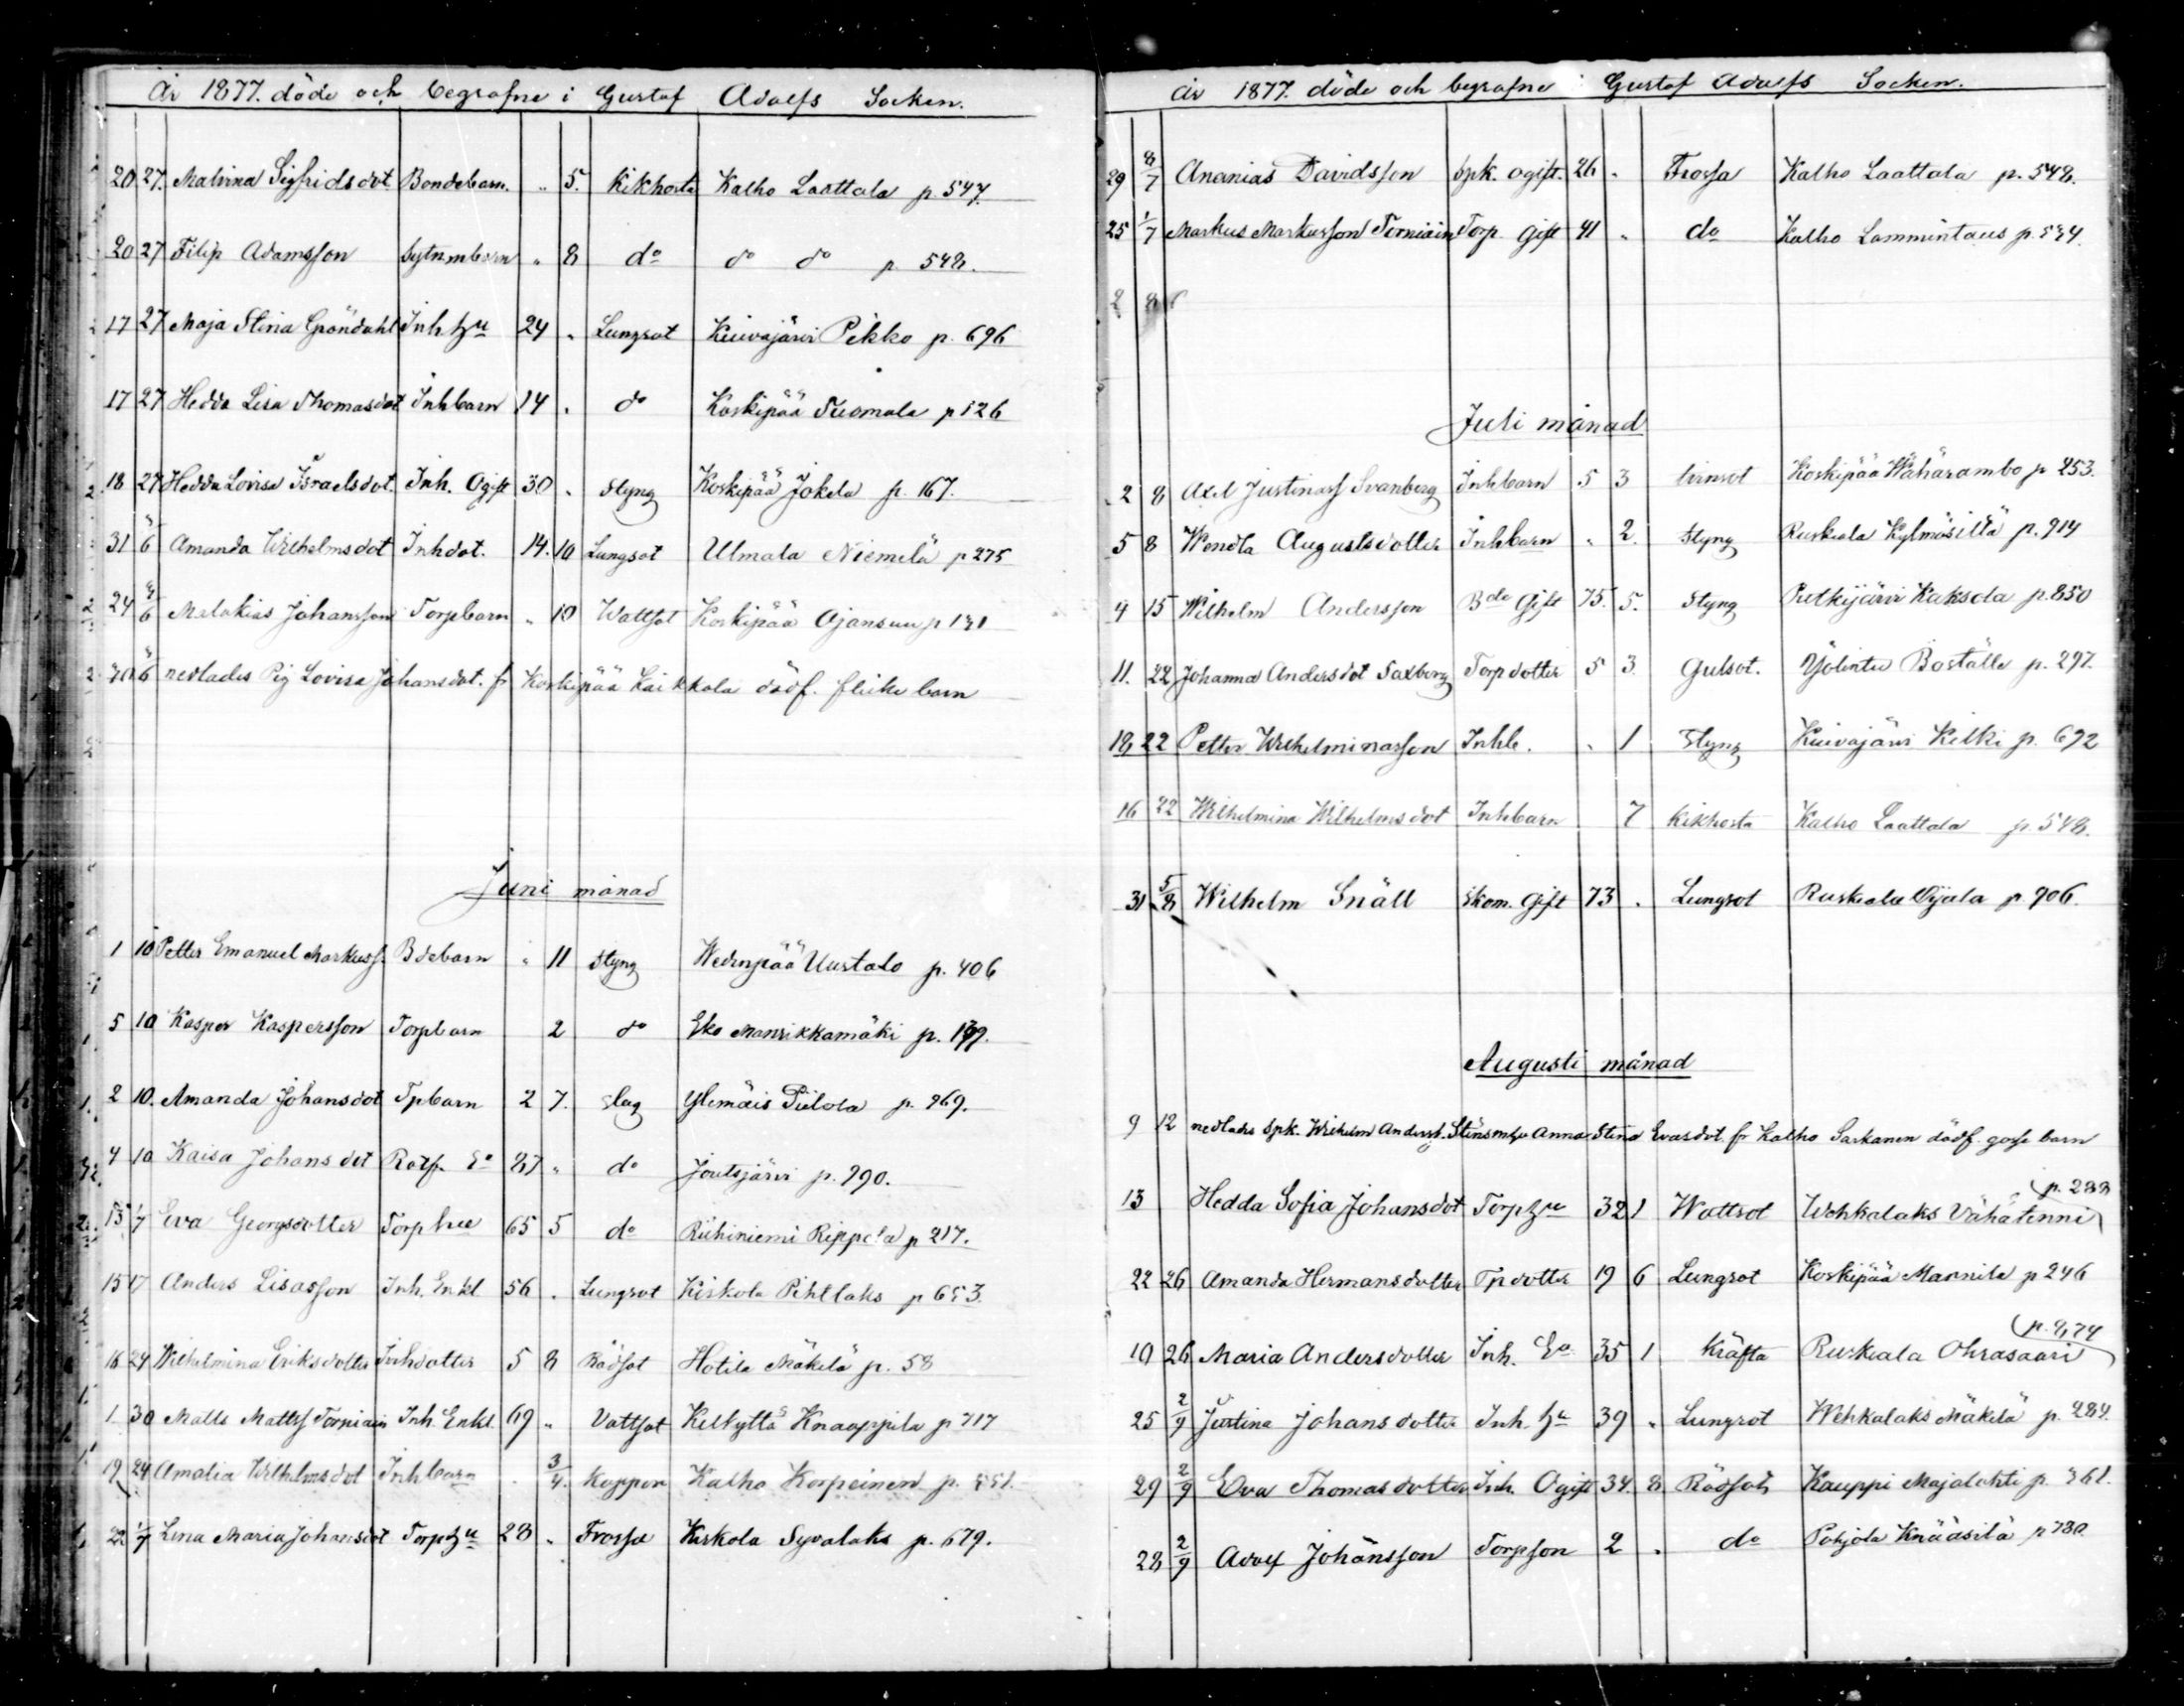 År 1877. döde och begrafne i Gustaf Adolfs Socken.
20 27. Malvina Sigfridsdot Bondebarn. " 5. Kikhosta Kalho Laattala p 547.
20 27 Filip Adamsson Sytnmbarn " 8 do do do p. 548.
17 27 Maja Stina Gröndahl Inh hu 24 " Lungsot Kuivajärvi Pekko p. 696
17 27 Hedda Lisa Thomasdot Inhbarn 14 " do Koskipää Tuomala p 126
18 27 Hedda Lovisa Israelsdot. Inh. Ogift 30 " Styng Koskipää Jokela p. 167.
31 3/6 Amanda Wilhelmsdot Inhdot. 14. 10 Lungsot Ulmala Niemelä p 275
24 3/6 Malakias Johansson Torpbarn " 10 Wattsot Koskipää Ajansuu p 131
30 3/6 nedlades Pig Lovisa Johansdot. fr Koskipää Kaikkola dödf. flicke barn
Juni månad
1 10 Petter Emanuel Markuss. Bdebarn " 11 Styng Wedenpää Uustalo p. 406
5 10 Kasper Kaspersson Torpbarn 2 do Eko Mansikkamäki p. 199.
2 10. Amanda Johansdot Tpbarn 2 7. Slag Ylemäis Piilola p. 969.
4 10 Kaisa Johansdot Rotf. Ea 87 " do Joutsjärvi p. 990.
13 1/7 Eva Georgsdotter Torphu 65 5 do Riihiniemi Rippola p 217.
15 17 Anders Lisasson Inh. Enkl 56 " Lungsot Kiskola Pihtlaks p 653.
16 24 Wilhelmina Eriksdotter Inhdotter 5 8 Rödsot Hotila Mäkelä p. 58
1 30 Matts Mattss Torniain Inh. Enkl. 69 " Vattsot Kelkyttä Knaappila p 717
19 24 Amalia Wilhelmsdot Inhbarn " 3/4. Koppor Kalho Korpeinen p. 551.
22 1/7 Lena Maria Johansdot Torphu 28 " Frossa Kiskola Syvalaks p. 679.
År 1877. döde och begrafne i Gustaf Adolfs Socken.
29 8/7 Ananias Davidsson Spk. ogift. 26 " Frossa Kalho Laattala p. 548.
25 1/7 Markus Markusson Torniain Torp. Gift 41 " do Kalho Lammintaus p. 534.
2 8
Juli månad
2 8 Axel Justinass Svanberg Inhbarn 5 3 Koskipää Wähärambo p 253.
5 8 Wendla Augustsdotter Inhbarn " 2. Styng Ruskeala Kylmäsillä p. 914
9 15 Wilhelm Andersson Bde Gift 75. 5. Styng Retkijärvi Kaksola p. 850
11. 22 Johanna Andersdot Saxberg Torpdotter 5 3. Gulsot. Yölintu Boställe p. 297.
18 22 Petter Wilhelminasson Inhb. " 1 Styng Kuivajärvi Kelki p. 692
16 22 Wilhelmina Wilhelmsdot Inhbarn 7 Kikhosta Kalho Laattala p. 548.
31 5/8 Wilhelm Snäll Skom. Gift 73 " Lungsot Ruskeala Ojala p. 906.
Augusti månad
9 12 nedlades Spk. Wilhelm Anderss. Stens mhu Anna Stina Evasdot. fr Kalho Sarkanen dödf. gosse barn
13 Hedda Sofia Johansdot Torphu 32 1 Wattsot Wehkalaks Vähätenni (p. 288
22 26 Amanda Hermansdotter Tpdotter 19 6 Lungsot Koskipää Mannila p 246
19 26 Maria Andersdotter Inh. Ea 35 1 Kräfta Ruskeala Ohrasaari (p. 874
25 2/9 Justina Johansdotter Inh. hu 39 " Lungsot Wehkalaks Mäkelä p. 284.
29 2/9 Eva Thomasdotter Inh. Ogift 34. 8. Rödsot Kauppi Majalahti p. 361.
28 2/9 Adolf Johansson Torpson 2 " do Pohjola Knääsilä p 780